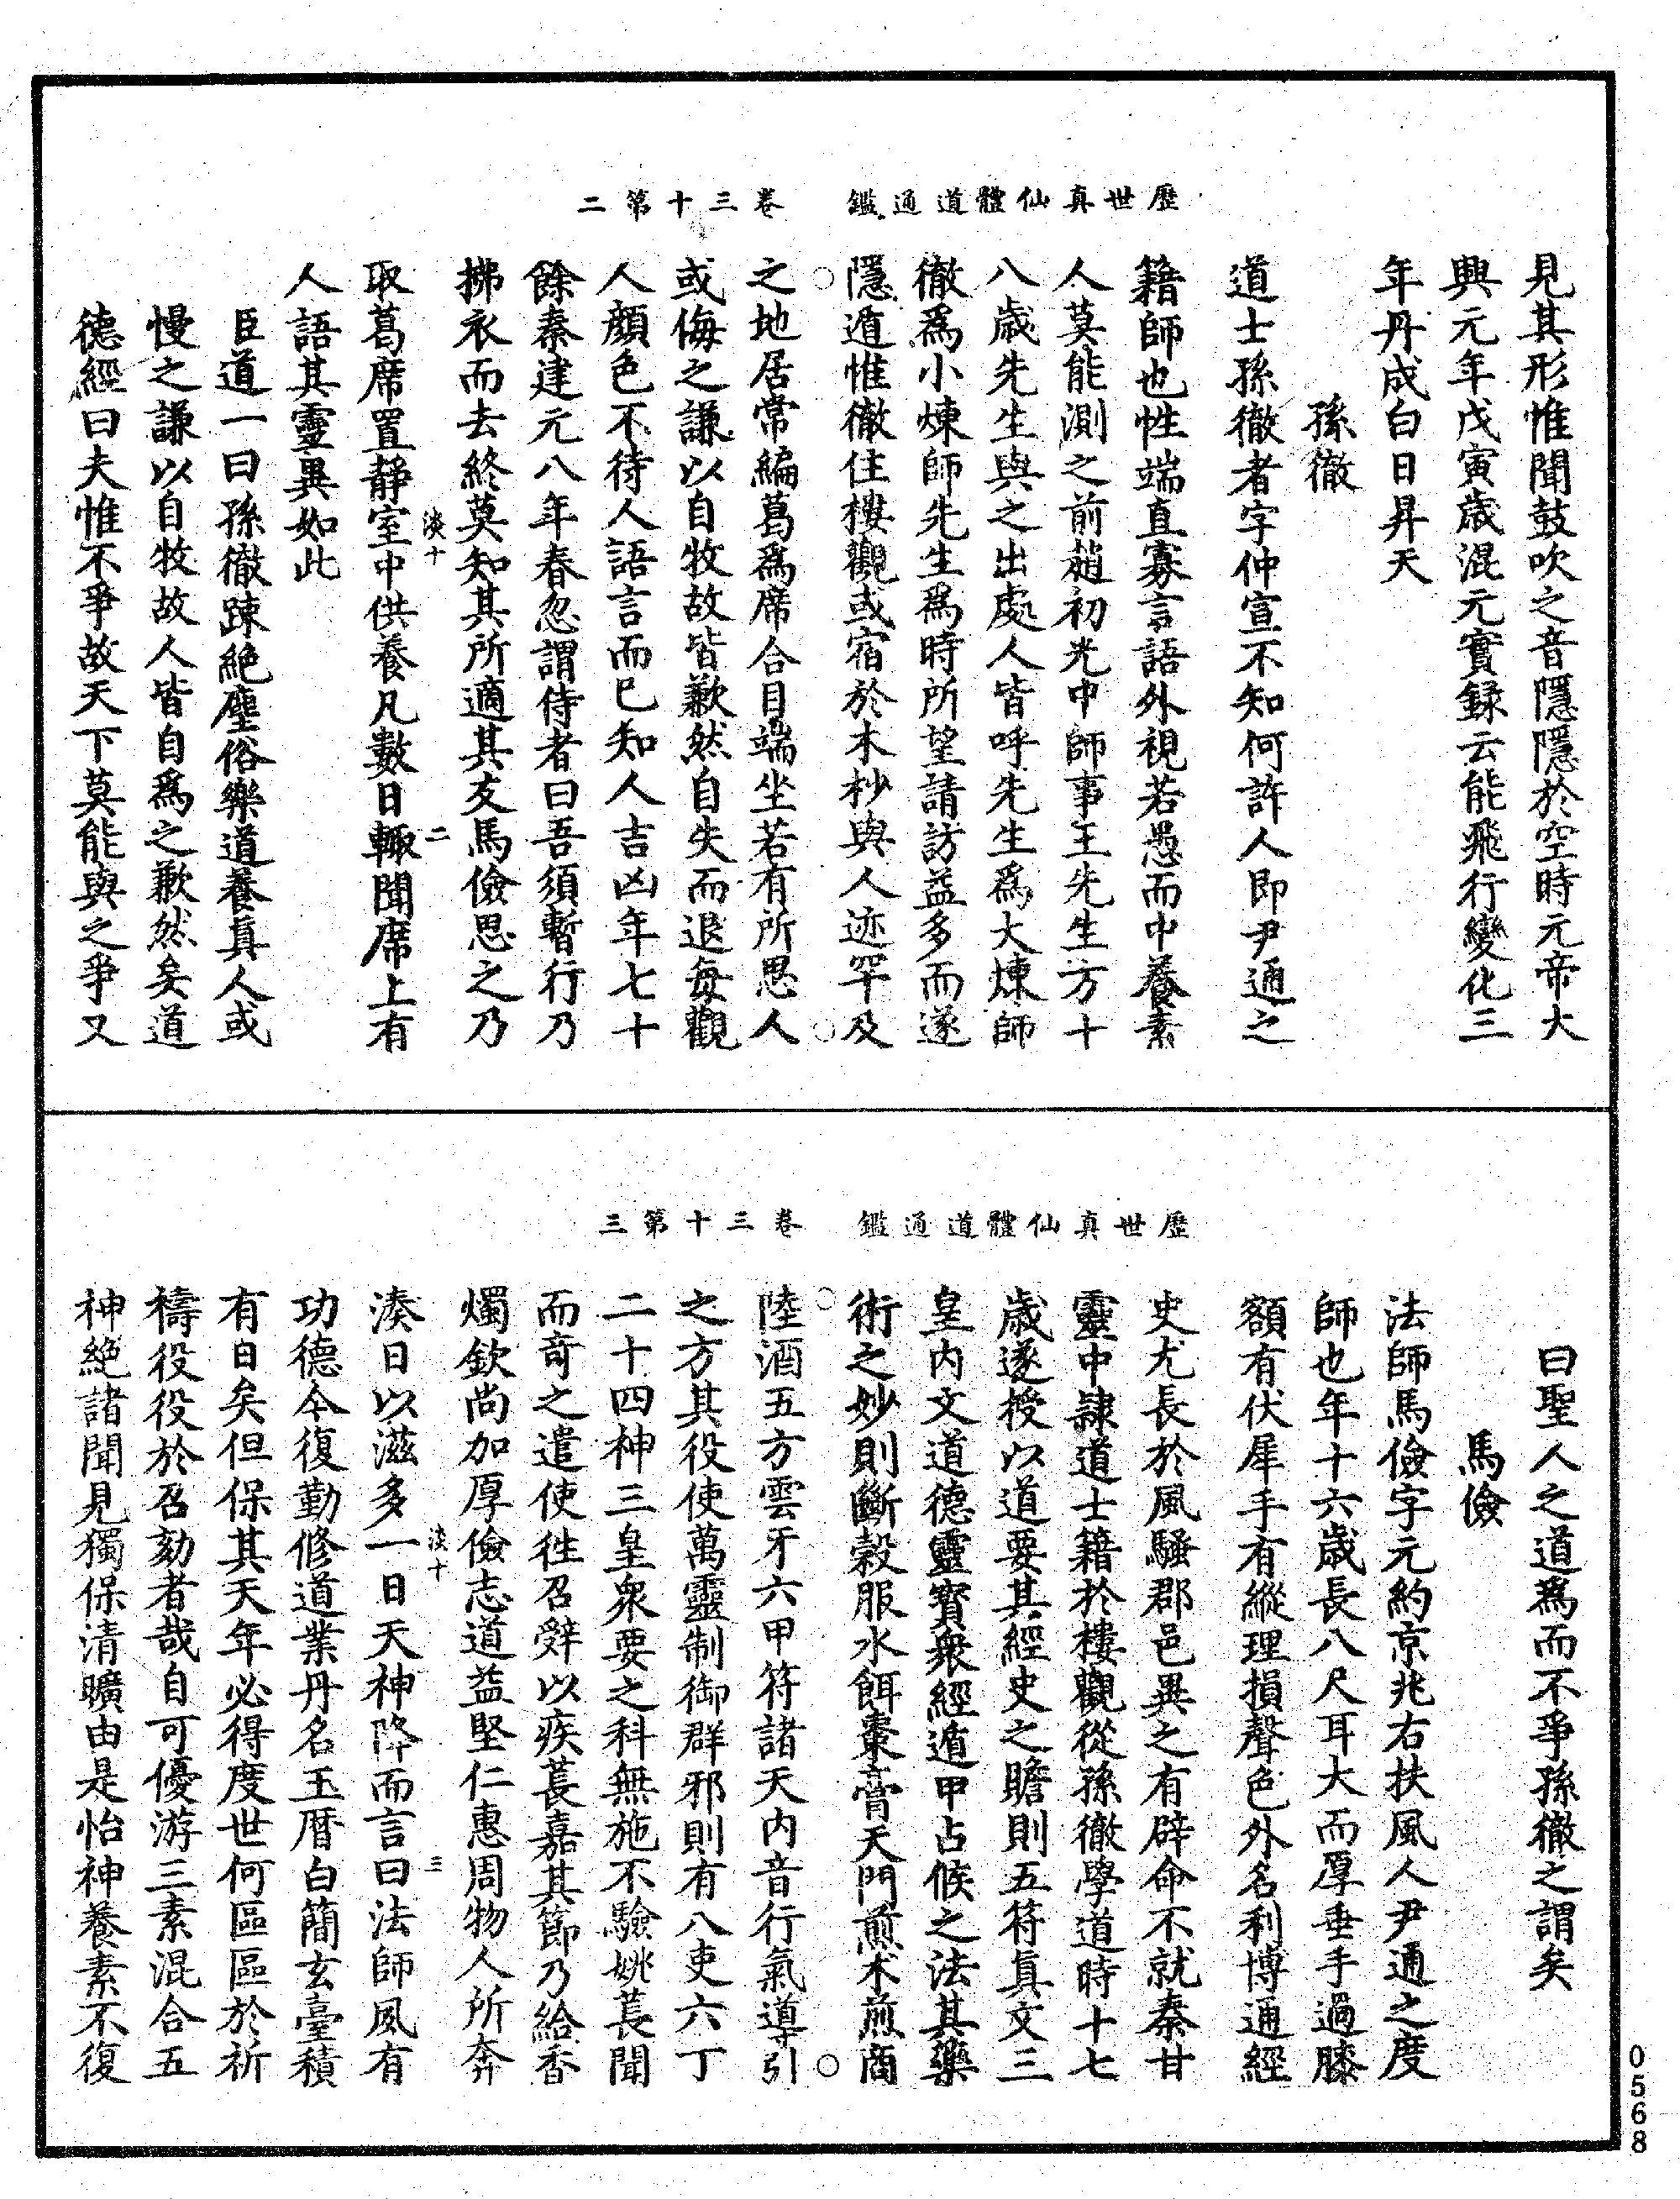 歷世真仙體道通鑑　卷三十第二
見其形惟聞鼓吹之音隱隱於空時元帝大
興元年戊寅歲混元實録云能飛行變化三
年丹成白日昇天
孫徹
道士孫徹者字仲宣不知何許人即尹通之
籍師也性端直寡言語外視若愚而中養素
人莫能測之前趙初光中師事王先生方十
八歲先生與之出處人皆呼先生爲大煉師
徹爲小煉師先生爲時所望請訪益多而遂
隱遁惟徹住樓觀或宿於木杪與人迹罕及
之地居常編葛爲席合目端坐若有所思人
或侮之謙以自牧故皆歉然自失而退每觀
人顏色不待人語言而已知人吉凶年七十
餘秦建元八年春忽謂侍者曰吾須暫行乃
拂衣而去終莫知其所適其友馬儉思之乃
淡十　二
取葛席置靜室中供養凡數日輒聞席上有
人語其靈異如此
臣道一曰孫徹踈絶塵俗樂道養真人或
慢之謙以自牧故人皆自爲之歉然矣道
德經曰夫惟不爭故天下莫能與之爭又
歷世真仙體道通鑑　卷三十第三
曰聖人之道爲而不爭孫徹之謂矣
馬儉
法師馬儉字元約京兆右扶風人尹通之度
師也年十六歲長八尺耳大而厚垂手過膝
額有伏犀手有縱理損聲色外名利博通經
史尤長於風騷郡邑異之有辟命不就秦甘
靈中隸道士籍於樓觀從孫徹學道時十七
歲遂授以道要其經史之贍則五符真文三
皇内文道德靈寳衆經遁甲占候之法其藥
術之妙則斷穀服水餌棗膏天門煎术煎商
陸酒五方雲牙六甲符諸天内音行氣導引
之方其役使萬靈制御群邪則有八吏六丁
二十四神三皇衆要之科無施不驗姚萇聞
而奇之遣使徃召辤以疾萇嘉其節乃給香
燭欽尚加厚儉志道益堅仁惠周物人所奔
淡十　三
湊日以滋多一日天神降而言曰法師夙有
功德今復勤修道業丹名玉曆白簡玄臺積
有日矣但保其天年必得度世何區區於祈
禱役役於召劾者哉自可優游三素混合五
神絶諸聞見獨保清曠由是怡神養素不復
0568